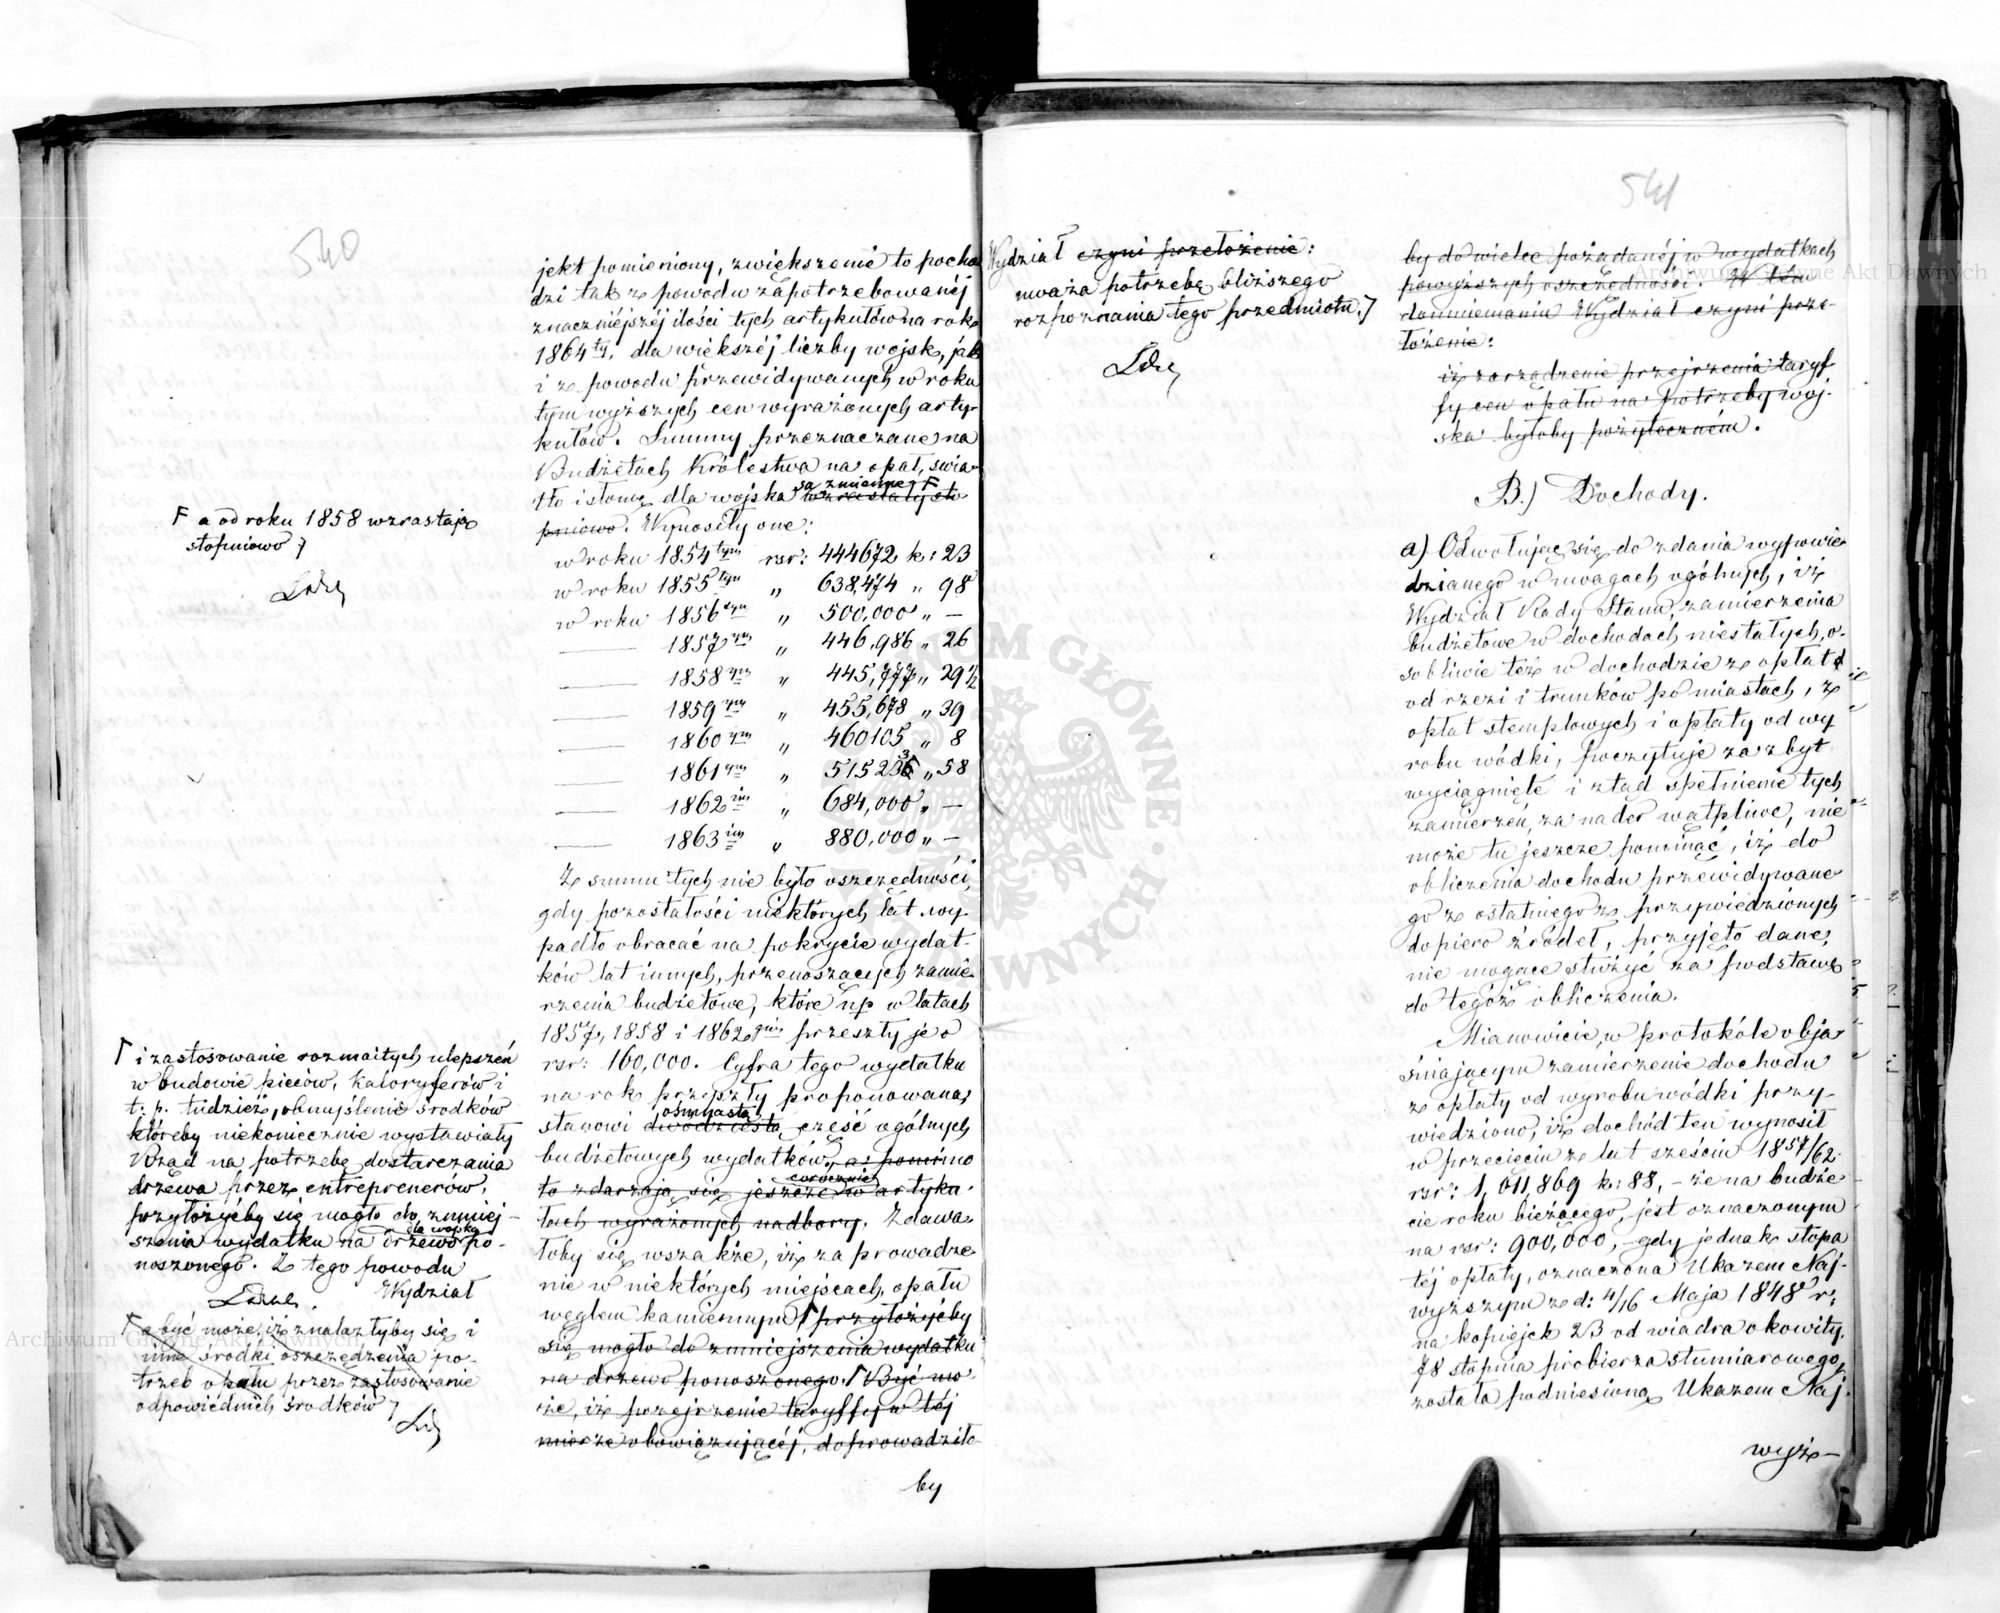 540
jekt pomieniony, zwiększenie to pocho
dzi tak z powodu zapotrzebowanéj
znaczniéjszéj ilości tych artykułów na rok
1864 ty, dla większéj liczby wojsk, jak
i z powodu przewidywanych w roku
tym wyższych cen wyrażonych arty-
kułów. Summy przeznaczane na
Budżetach Królestwa na opał, świa-
tło i słomę dla wojska są zmienne Γ wzrastały sto
pniowo. Wynosiły one:
w roku 1854 tym rsr: 444672 k: 23
w roku 1855 tym „ 638,474 „ 98
w roku 1856 tym „ 500,000 „ —
1857 ym „ 446,986 „ 26
1858 ym „ 445,777 „ 29 1/2
1859 ym „ 455,678 „ 39
1860 ym „ 460105 „ 8
1861 ym „ 515236 „ 58
1862 im „ 684,000 „ —
1863 im „ 880,000 „ —
Z summ tych nie było oszczędności,
gdy pozostałości niektórych lat wy-
padło obracać na pokrycie wydat-
ków lat innych, przenoszących zamie-
rzenia budżetowe, które np w latach
1857, 1858 i 1862 gim przeszły je o
rsr: 160,000. Cyfra tego wydatku
na rok przyszły proponowana,
stanowi dwudziestą ośmnastą część ogólnych
budżetowych wydatków, a pomimo
to zdarzają się jeszcze corocznie w artyku-
łach wyrażonych nadbory. Zdawa-
łoby się wszakże, iż zaprowadze
nie w niektórych miejscach, opału
węglem kamiennym Γ przyłożyćby
się mogło do zmniejszenia wydatku
na drzewo ponoszonego. Γ Być mo
że, iż przejrzenie taryffy w téj
mierze obowiązującéj, doprowadziło-
by
Γ a od roku 1858 wzrastają
stopniowo
Γ i zastosowanie rozmaitych ulepszeń
w budowie pieców, kaloryferów i
t. p. tudzież, obmyślenie środków
któreby niekoniecznie wystawiały
Rząd na potrzebę dostarczania
drzewa przez entreprenerów,
przyłożyćby się mogło do zmniej-
szenia wydatku na drzewo dla wojska po-
noszonego. Z tego powodu
Wydział
Γ a być może, iż znalazłyby się i
inne środki oszczędzenia po-
trzeb opału przez zastosowanie
odpowiednich środków
541
Wydział czyni przełożenie:
uważa potrzebę bliższego
rozpoznania tego przedmiotu.
by do wielce pożądanéj w wydatkach
powyższych oszczędności. W tém
domniemaniu Wydział czyni prze-
łożenie:
iż zarządzenie przejrzenia taryf
fy cen opału na potrzeby woj-
ska byłoby pożyteczném.
B.) Dochody.
a) Odwołując się do zdania wypowie
dzianego w uwagach ogólnych, iż
Wydział Rady Stanu, zamierzenia
budżetowe w dochodach niestałych, o-
sobliwie też w dochodzie z opłat
od rzezi i trunków po miastach, z
opłat stemplowych i opłaty od wy
robu wódki, poczytuje za zbyt
wyciągnięte i ztąd spełnienie tych
zamierzeń, za nader wątpliwe, nie
może tu jeszcze pominąć, iż do
obliczenia dochodu przewidywane
go z ostatniego z przywiedzionych
dopiero źródeł, przyjęto dane,
nie mogące służyć za podstawę
do tegoż obliczenia.
Mianowicie, w protokóle obja
śniającym zamierzenie dochodu
z opłaty od wyrobu wódki przy-
wiedziono, iż dochód ten wynosił
w przecięciu z lat sześciu 1857/62
rsr: 1,011,869 k: 88, — że na budże
cie roku bieżącego, jest oznaczonym
na rsr: 900,000, — gdy jednak stopa
téj opłaty, oznaczona Ukazem Naj-
wyższym z d: 4/16 Maja 1848 r:
na kopiejek 23 od wiadra okowity,
78 stopnia probierza stumiarowego,
została podniesioną Ukazem Naj-
wyż—
Archiwum Główne Akt Dawnych
Archiwum Główne Akt Dawnych